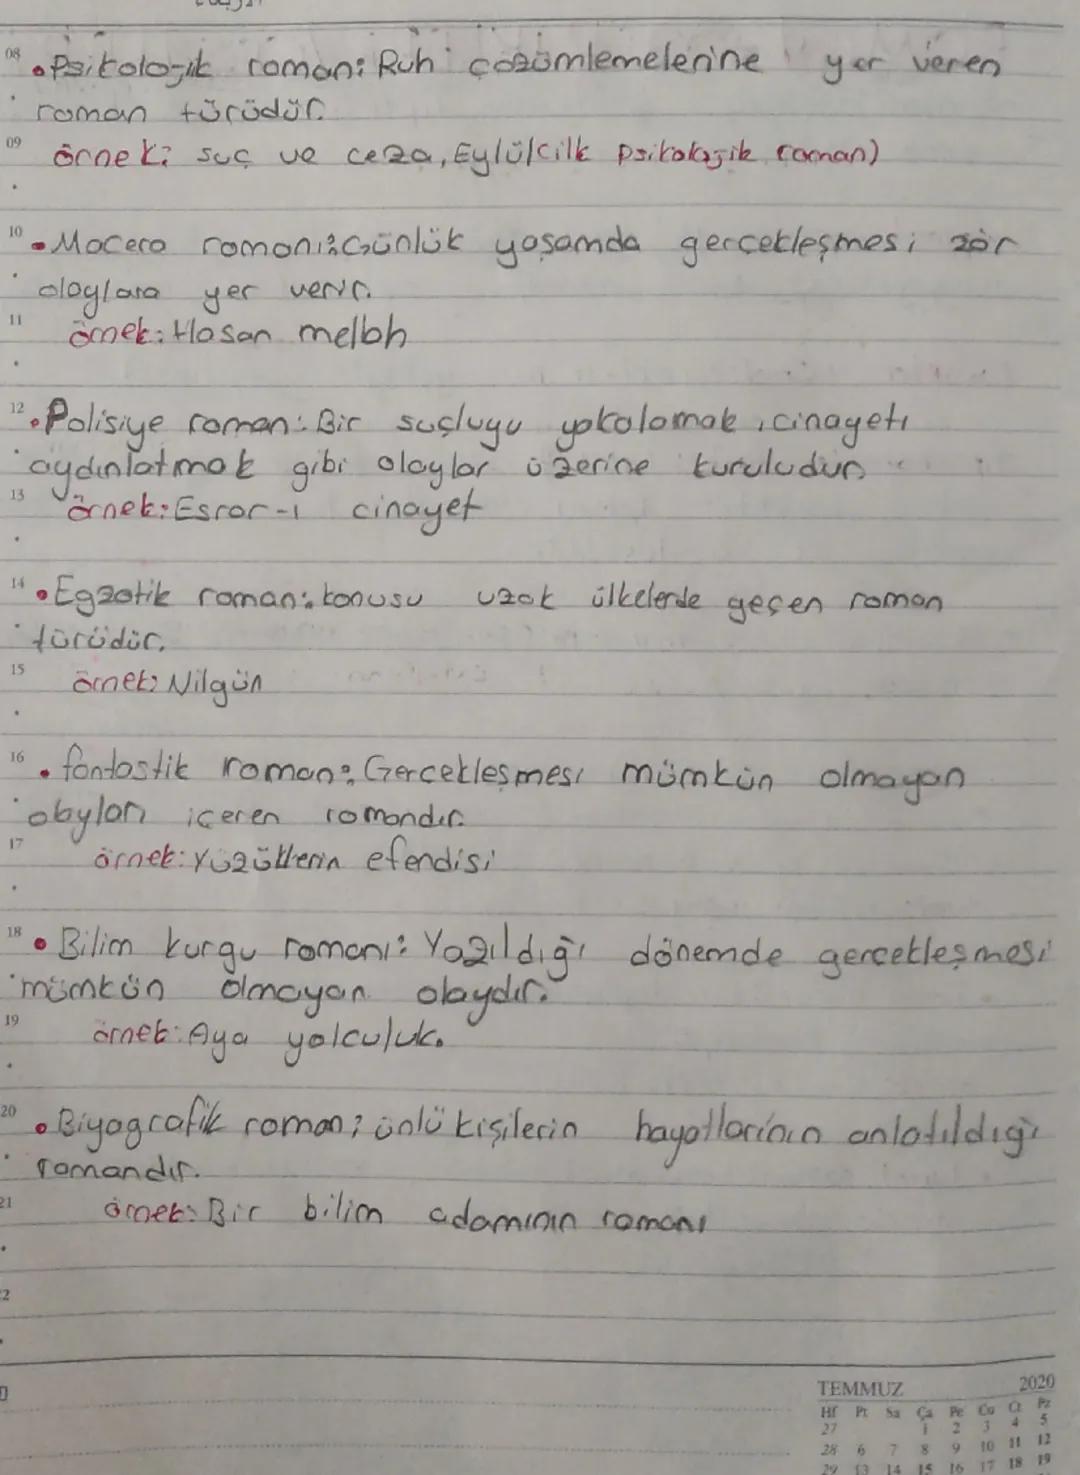 08 • Psikolojik roman: Ruh çözümlemelerine yer veren
roman türüdür.
09 örnek: suç ve ceza, Eylül(ilk psikolojik roman)
10 • Macera romanı: Günlük yaşamda gerçekleşmesi zor
olaylara yer verir.
11 örnek: Hasan mellah
12 • Polisiye roman: Bir suçluyu yakalamak, cinayeti
aydınlatmak gibi olaylar üzerine kuruludur.
13 örnek: Esrar-ı cinayet
14 • Egzotik roman: konusu uzak ülkelerde geçen roman
türüdür.
15 örnek: Nilgün
16 • fantastik roman: Gerçekleşmesi mümkün olmayan
olayları içeren romandır.
17 örnek: Yüzüklerin efendisi
18 • Bilim kurgu romanı: Yazıldığı dönemde gerçekleşmesi
mümkün olmayan olaydır.
19 örnek: Aya yolculuk.
20 • Biyografik roman: ünlü kişilerin hayatlarının anlatıldığı
romandır.
21 örnek: Bir bilim adamının romanı
TEMMUZ 2020
Hf Pt Sa Ça Pe Cu Ct Pz
27 1 2 3 4 5
28 6 7 8 9 10 11 12
29 13 14 15 16 17 18 19